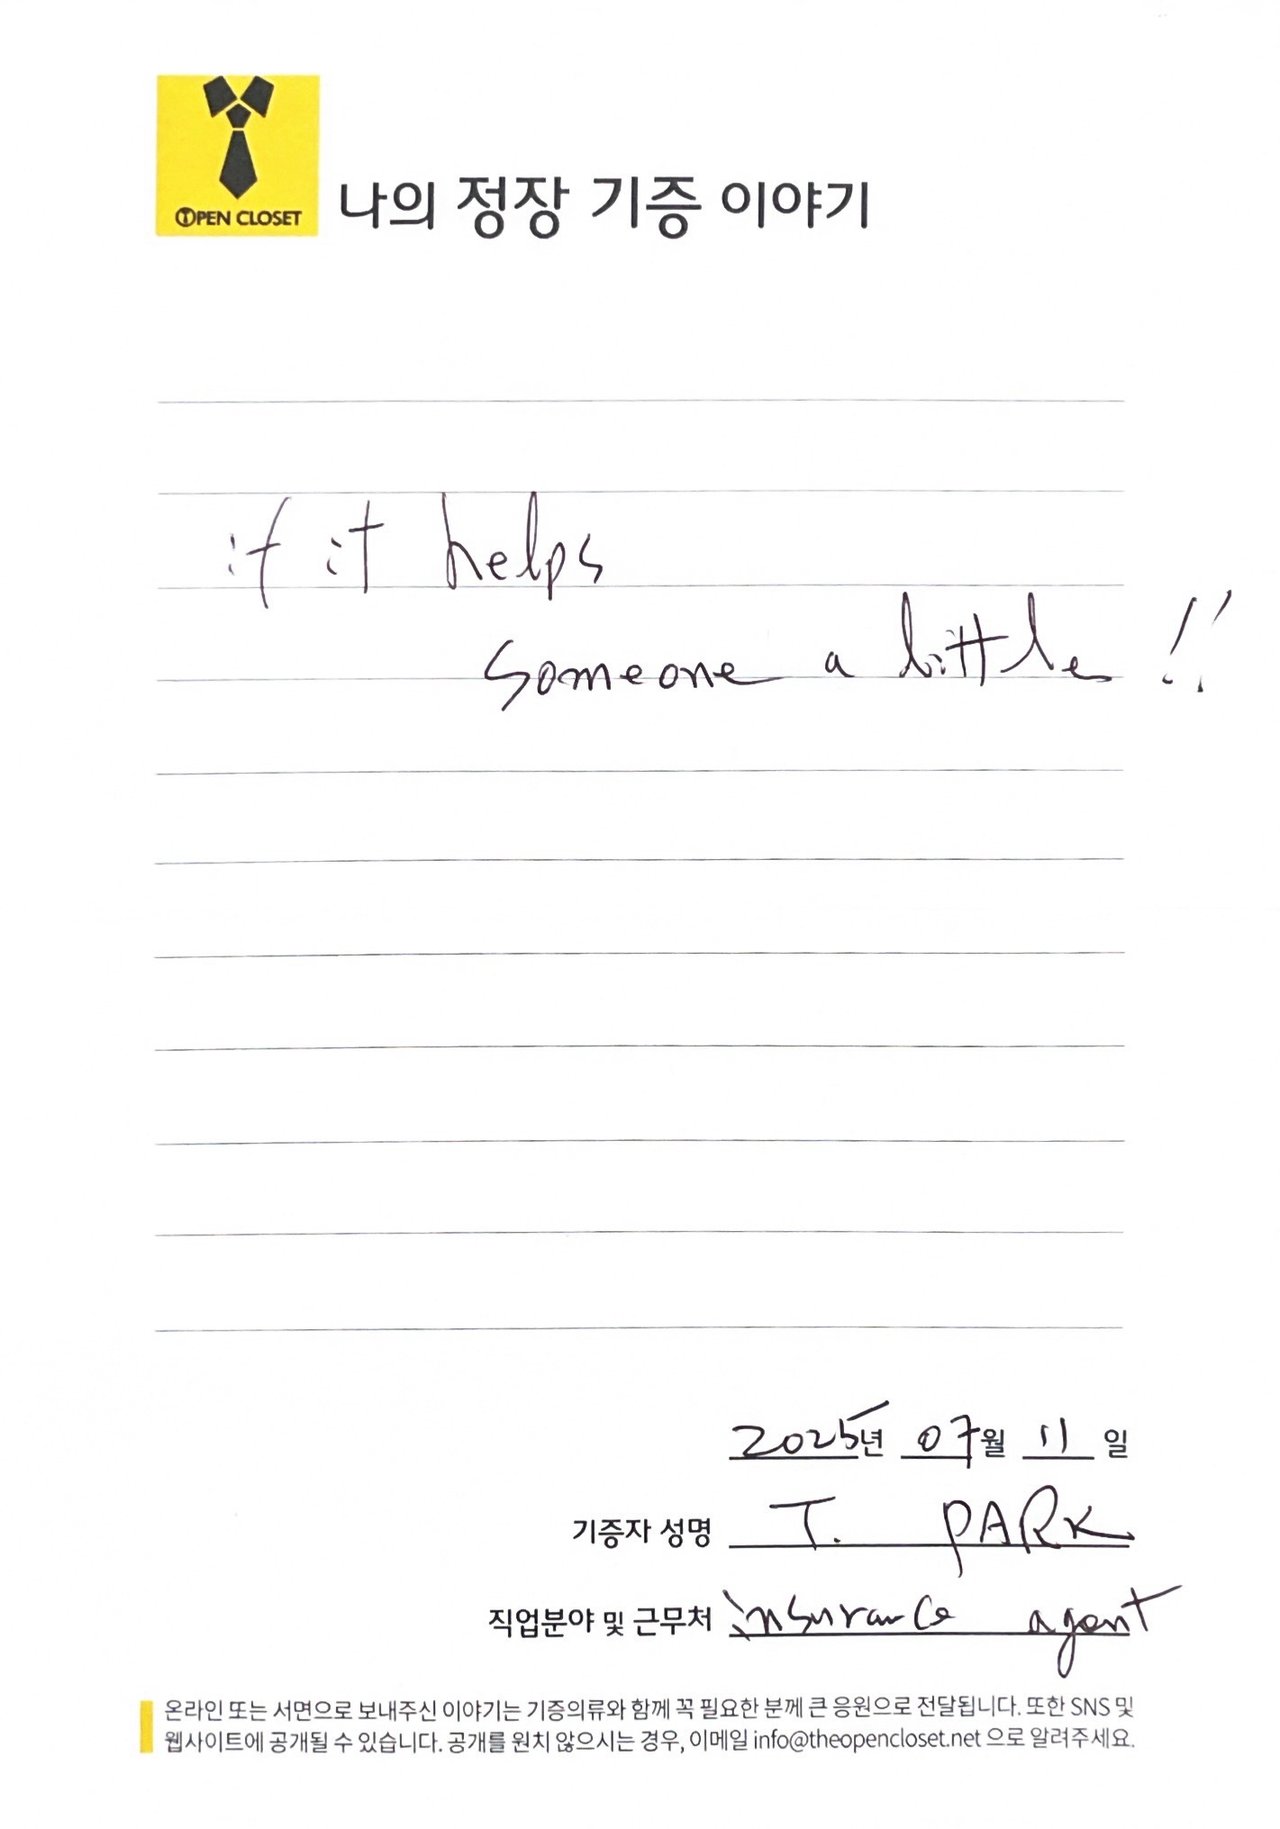 OPEN CLOSET
나의 정장 기증 이야기
if it helps
someone a little !!
2025년 07월 11일
기증자 성명 T. PARK
직업분야 및 근무처 insurance agent
온라인 또는 서면으로 보내주신 이야기는 기증의류와 함께 꼭 필요한 분께 큰 응원으로 전달됩니다. 또한 SNS 및
웹사이트에 공개될 수 있습니다. 공개를 원치 않으시는 경우, 이메일 info@theopencloset.net 으로 알려주세요.